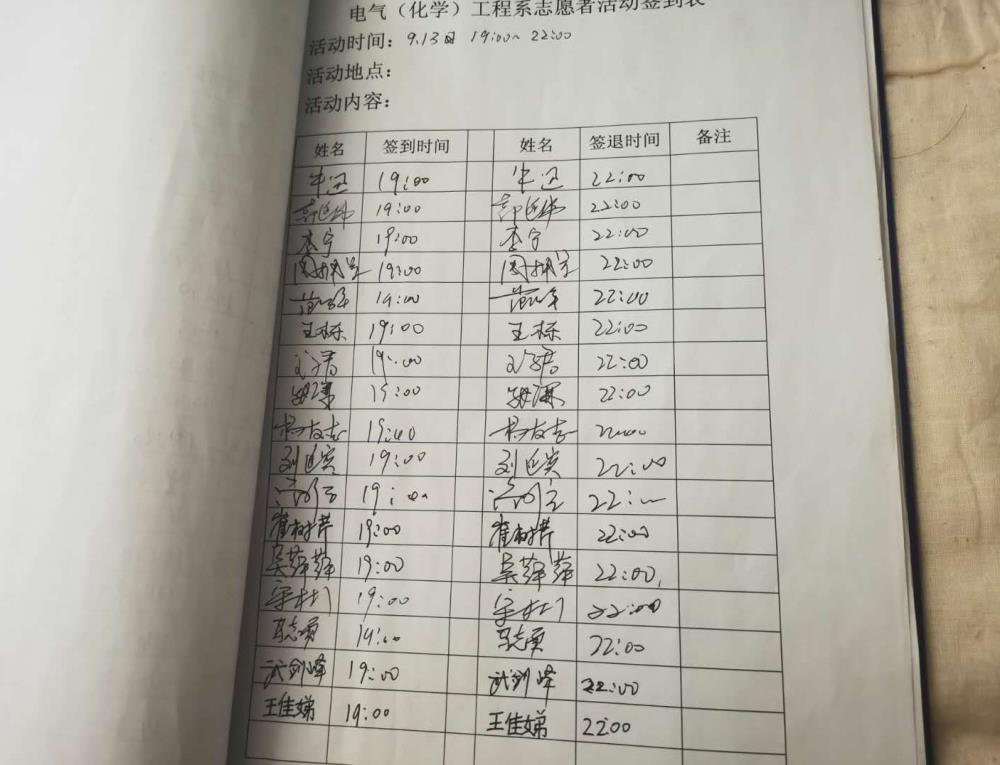 电气（化学）工程系志愿者活动签到表
活动时间：9.13日 19:00~22:00
活动地点：
活动内容：
姓名 签到时间 姓名 签退时间 备注
牛迅 19:00 牛迅 22:00
19:00 22:00
李宁 19:00 李宁 22:00
19:00 22:00
19:00 22:00
王栎 19:00 王栎 22:00
19:00 22:00
19:00 22:00
杨志 19:00 杨志 22:00
刘延宾 19:00 刘延宾 22:00
19:00 22:
崔树芹 19:00 崔树芹 22:00
吴萍萍 19:00 吴萍萍 22:00
19:00 22:00
马志勇 19:00 马志勇 22:00
武剑峰 19:00 武剑峰 22:00
王佳娣 19:00 王佳娣 22:00